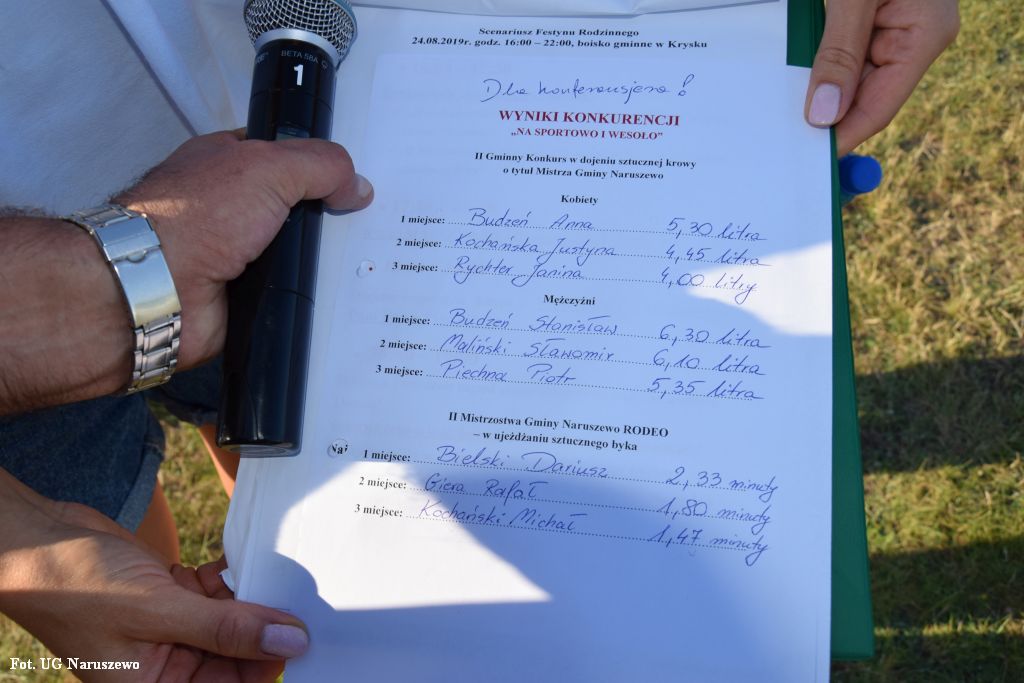 BETA 58A
1
Scenariusz Festynu Rodzinnego
24.08.2019r. godz. 16:00 – 22:00, boisko gminne w Krysku
Dla konferansjera!
WYNIKI KONKURENCJI
„NA SPORTOWO I WESOŁO”
II Gminny Konkurs w dojeniu sztucznej krowy
o tytuł Mistrza Gminy Naruszewo
Kobiety
1 miejsce: Budzeń Anna 5,30 litra
2 miejsce: Kochańska Justyna 4,45 litra
3 miejsce: Rychter Janina 4,00 litry
Mężczyźni
1 miejsce: Budzeń Stanisław 6,30 litra
2 miejsce: Maliński Sławomir 6,10 litra
3 miejsce: Piechna Piotr 5,35 litra
II Mistrzostwa Gminy Naruszewo RODEO
– w ujeżdżaniu sztucznego byka
1 miejsce: Bielski Dariusz 2,33 minuty
2 miejsce: Giera Rafał 1,80 minuty
3 miejsce: Kochański Michał 1,47 minuty
Fot. UG Naruszewo